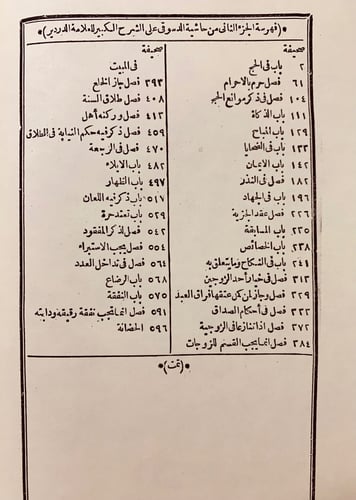 ﴿فهرسة الجزء الثاني من حاشية الدسوقي على الشرح الكبير للعلامة الدردير﴾
صحيفة
٢ باب في الحج
٦١ فصل حرم بالاحرام
١٠٤ فصل في ذكر موانع الحج
١١١ باب الذكاة
١٢٩ باب المباح
١٣٣ باب في الضحايا
١٤٢ باب الايمان
١٨٢ فصل في النذر
١٩٦ باب في الجهاد
٢٢٦ فصل عقد الجزية
٢٣٥ باب المسابقة
٢٣٨ باب الخصائص
٢٤١ باب في النكاح وما يتعلق به
٣١٣ فصل في خيار أحد الزوجين
٣٢٩ فصل وجاز لمن كمل عتقها فراق العبد
٣٣٣ فصل في أحكام الصداق
٣٧٢ فصل اذا تنازعا في الزوجية
٣٨٤ فصل انما يجب القسم للزوجات
صحيفة
في المبيت
٣٩٣ فصل جاز الخلع
٤٠٨ فصل طلاق السنة
٤١٣ فصل وركنه أهل
٤٥٩ فصل ذكر فيه حكم النيابة في الطلاق
٤٧٠ فصل في الرجعة
٤٨٢ باب الايلاء
٤٩٧ باب الظهار
٥١٧ باب ذكر فيه اللعان
٥٢٩ باب تعتد حرة
٥٤٢ فصل لذكر المفقود
٥٥٤ فصل يجب الاستبراء
٥٦٤ فصل في تداخل العدد
٥٦٨ باب الرضاع
٥٧٥ باب النفقة
٥٩١ فصل انما تجب نفقة رقيقه ودابته
٥٩٦ الحضانة
﴿تمت﴾